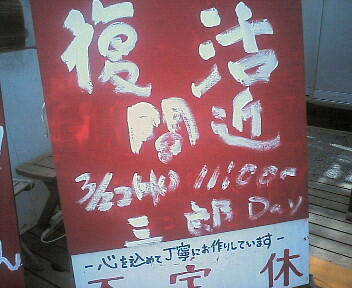 復活
間近
3/22(水) 11:00〜
三郎Day
-心を込めて丁寧にお作りしています-
不定休
ん